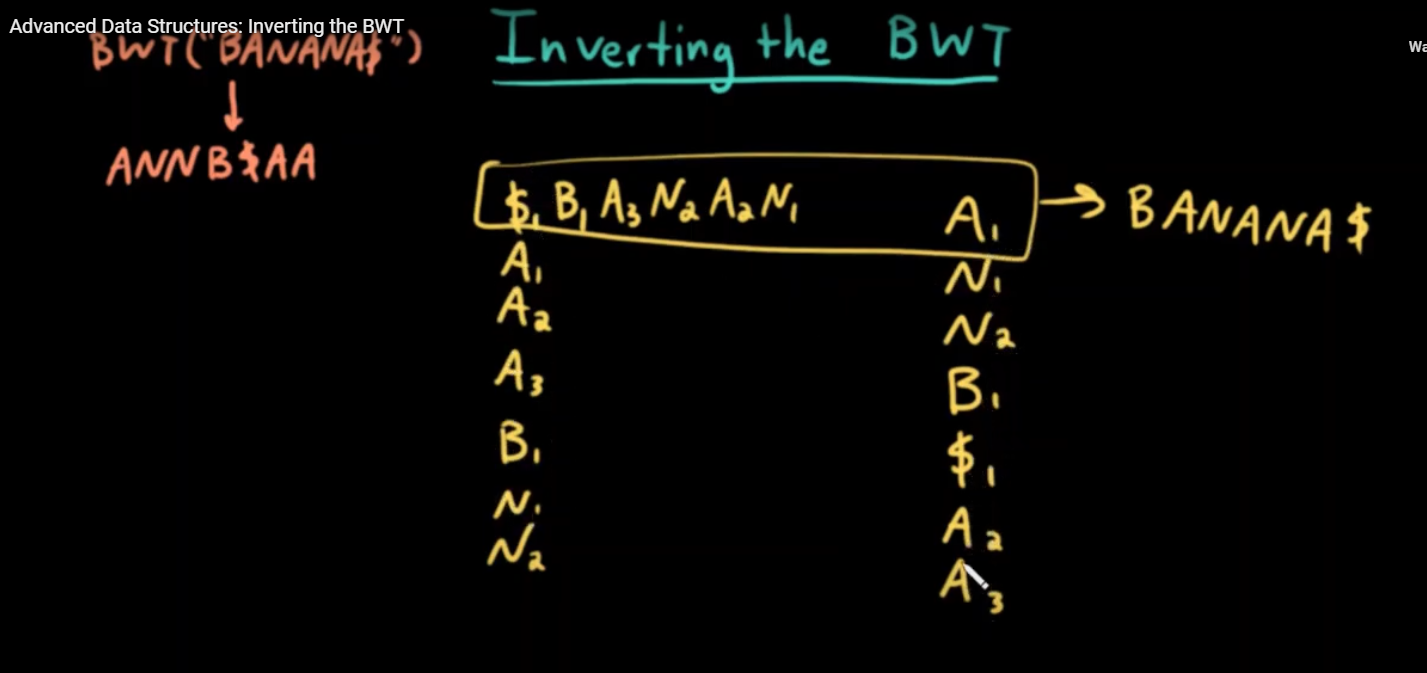 Advanced Data Structures: Inverting the BWT
Wa
BWT("BANANA$")
Inverting the BWT
ANNB$AA
$₁ B₁ A₃ N₂ A₂ N₁ A₁ → BANANA$
A₁ N₁
A₂ N₂
A₃ B₁
B₁ $₁
N₁ A₂
N₂ A₃